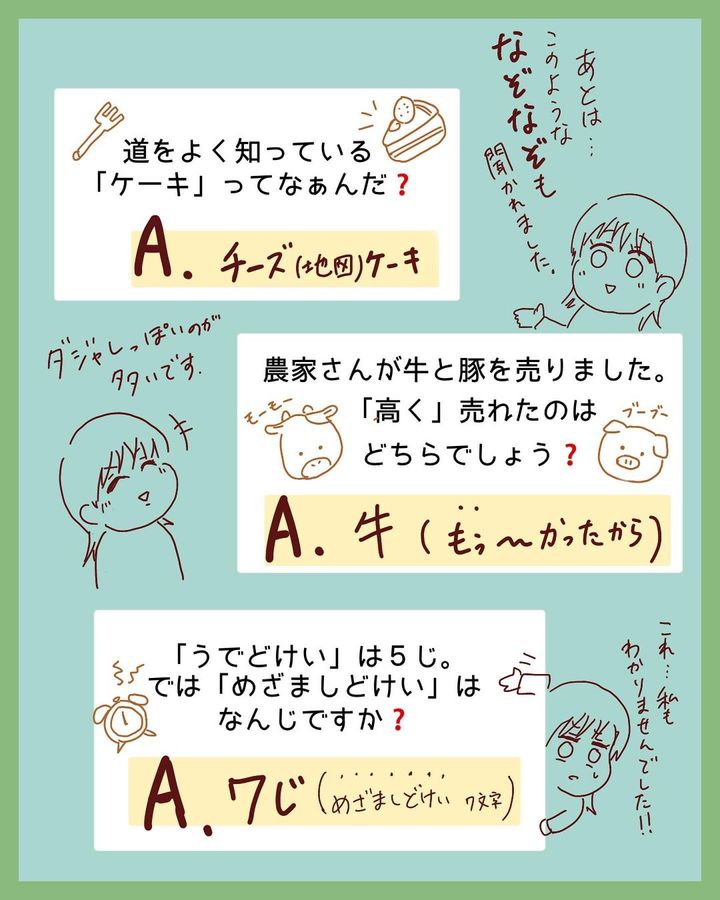 あとは…
このような
なぞなぞも
聞かれました。
道をよく知っている
「ケーキ」ってなぁんだ❓
A. チーズ(地図)ケーキ
ダジャレっぽいのが
多いです.
農家さんが牛と豚を売りました。
モーモー
「高く」売れたのは
ブーブー
どちらでしょう❓
A. 牛 (もぅ〜かったから)
「うでどけい」は5じ。
では「めざましどけい」は
なんじですか❓
A. 7じ (めざましどけい 7文字)
これ…私も
わかりませんでした!!